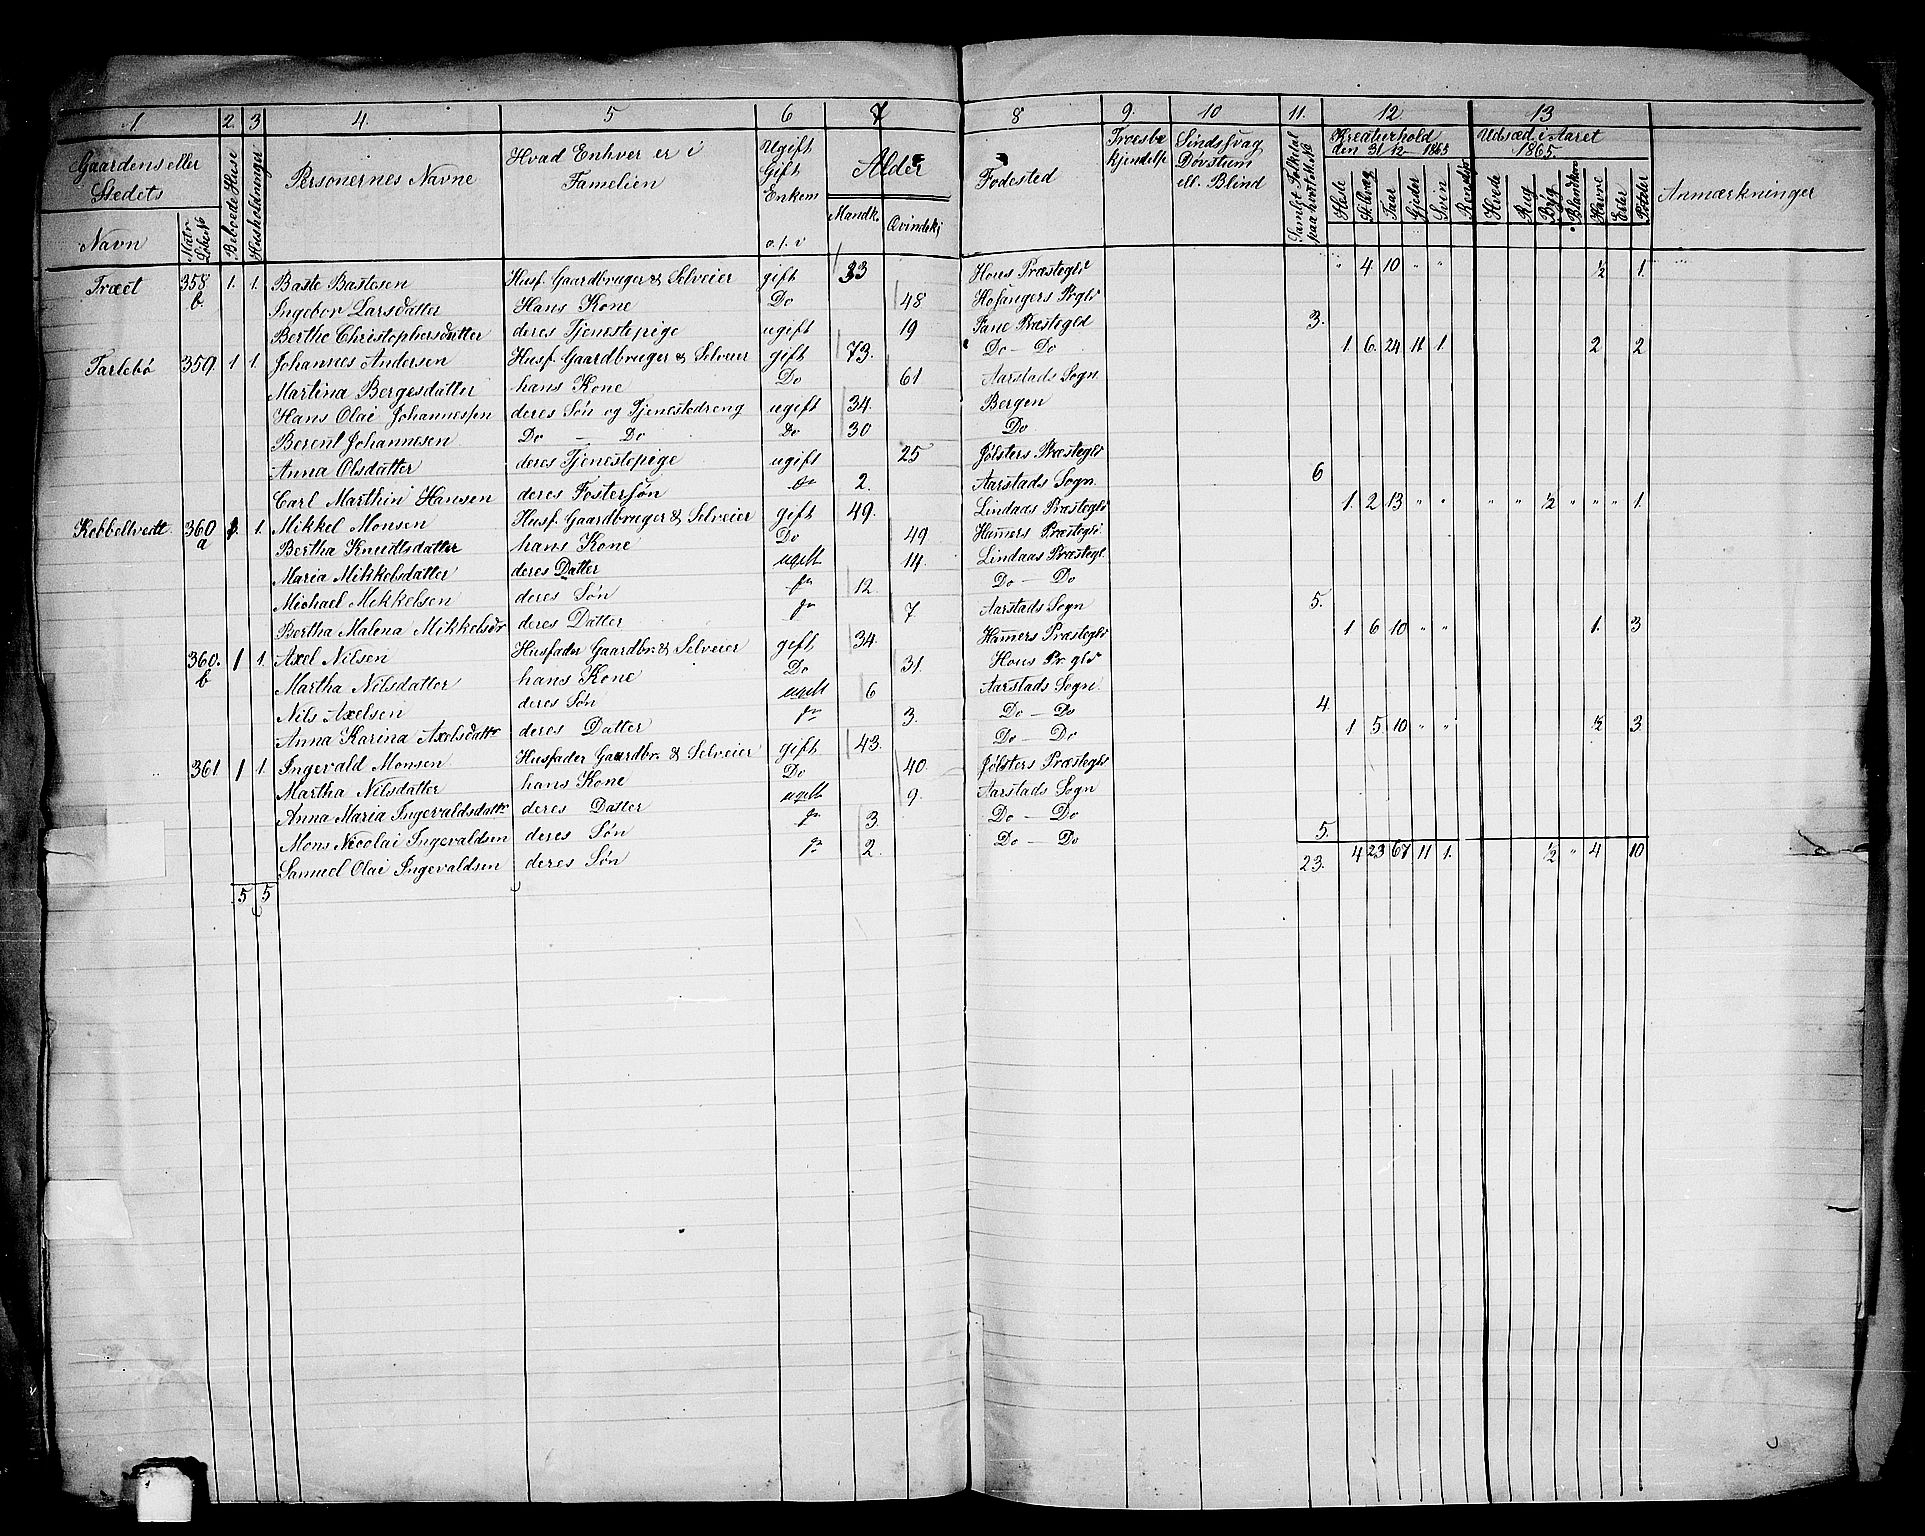 1. 2. 3 4. 5 6 7 8 9. 10 11. 12 13
Gaardens eller Stedets Navn | Matr. Løbe № | Beboede Huse | Husholdninger | Personernes Navne | Hvad Enhver er i Familien | Ugift Gift Enkem o.s.v | Alder Mandk. Qvindekj | Fødested | Troesbekjendelse | Sindssvag Døvstum ell. Blind | Samlet Folketal paa hvert M. No | Kreaturhold den 31/12 1865 | Udsæd i Aaret 1865. | Anmærkninger
Heste St. Qvæg Faar Gjeder Sviin Rensdyr Hvede Rug Byg Blandkorn Havre Erter Poteter
Træet 358 b. 1. 1. Baste Bastesen Husf. Gaardbruger & Selveier gift 33 Hous Præstegld " 4 10 " " ½ 1.
Ingebor Larsdatter Hans Kone Do 48 Hosangers Prgld
Berthe Christophersdatter deres Tjenestepige ugift 19 Fane Præstegld 3.
Tarlebø 359. 1 1. Johannes Andersen Husf. Gaardbruger & Selveier gift 73. Do — Do 1 6. 24 11 1. 2 2
Martina Bergesdatter hans Kone Do 61 Aarstads Sogn.
Hans Olai Johannessen deres Søn og Tjenestedreng ugift 34. Bergen
Berent Johannesen Do — Do Do 30 Do
Anna Olsdatter deres Tjenestepige ugift 25 Jølsters Præstegld
Carl Marthin Hansen deres Fostersøn Do 2. Aarstads Sogn. 6
Kobbeltvedt. 360 a 1. 1. Mikkel Monsen Husf. Gaardbruger & Selveier gift 49. Lindaas Præstegld 1. 2 13 " " " " ½ " " " 1.
Bertha Knudtsdatter hans Kone Do 49 Hamers Præstegld
Maria Mikkelsdatter deres Datter ugift 14. Lindaas Præstegl.
Michael Mikkelsen deres Søn Do 12 Do — Do
Bertha Malena Mikkelsdr deres Datter Do 7 Aarstads Sogn 5.
360. b 1 1. Axel Nilsen Husfader Gaardbr. & Selveier gift 34. Hamers Præstegld 1 6 10 " " 1. 3
Martha Nilsdatter hans Kone Do 31. Hous Pr. gld
Nils Axelsen deres Søn ugift 6 Aarstads Sogn.
Anna Karina Axelsdattr deres Datter Do 3. Do — Do 4
361 1 1. Ingevald Monsen Husfader Gaardbr. & Selveier gift 43. Do — Do 1 5 10 " " ½ 3.
Martha Nilsdatter hans Kone Do 40. Jølsters Præstegld
Anna Maria Ingevaldsdattr deres Datter ugift 9. Aarstads Sogn
Mons Nicolai Ingevaldsen deres Søn Do 3. Do — Do
Samuel Olai Ingevaldsen deres Søn Do 2. Do — Do 5.
5 5 23. 4 23 67 11 1. ½ " 4 10